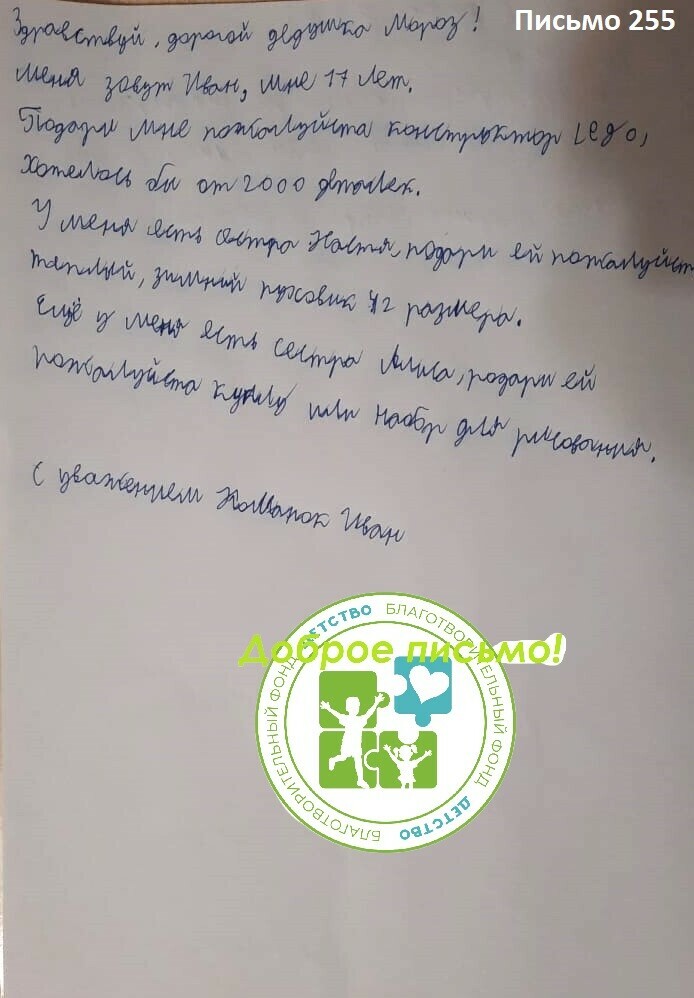 Письмо 255
Здравствуй, дорогой дедушка Мороз!
Меня зовут Иван, мне 17 лет.
Подари мне пожалуйста конструктор Lego,
Хотелось бы от 2000 деталек.
У меня есть сестра Настя, подари ей пожалуйст
тёплый, зимний пуховик 42 размера.
Ещё у меня есть сестра Алиса, подари ей
пожалуйста куклу или набор для рисования.
С уважением Иван
Доброе письмо!
БЛАГОТВОРИТЕЛЬНЫЙ ФОНД ДЕТСТВО
БЛАГОТВОРИТЕЛЬНЫЙ ФОНД ДЕТСТВО